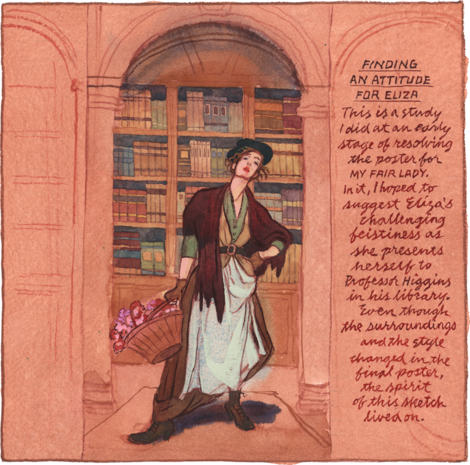 FINDING
AN ATTITUDE
FOR ELIZA
This is a study
I did at an early
stage of resolving
the poster for
MY FAIR LADY.
In it, I hoped to
suggest Eliza's
challenging
feistiness as
she presents
herself to
Professor Higgins
in his library.
Even though
the surroundings
and the style
changed in the
final poster,
the spirit
of this sketch
lived on.